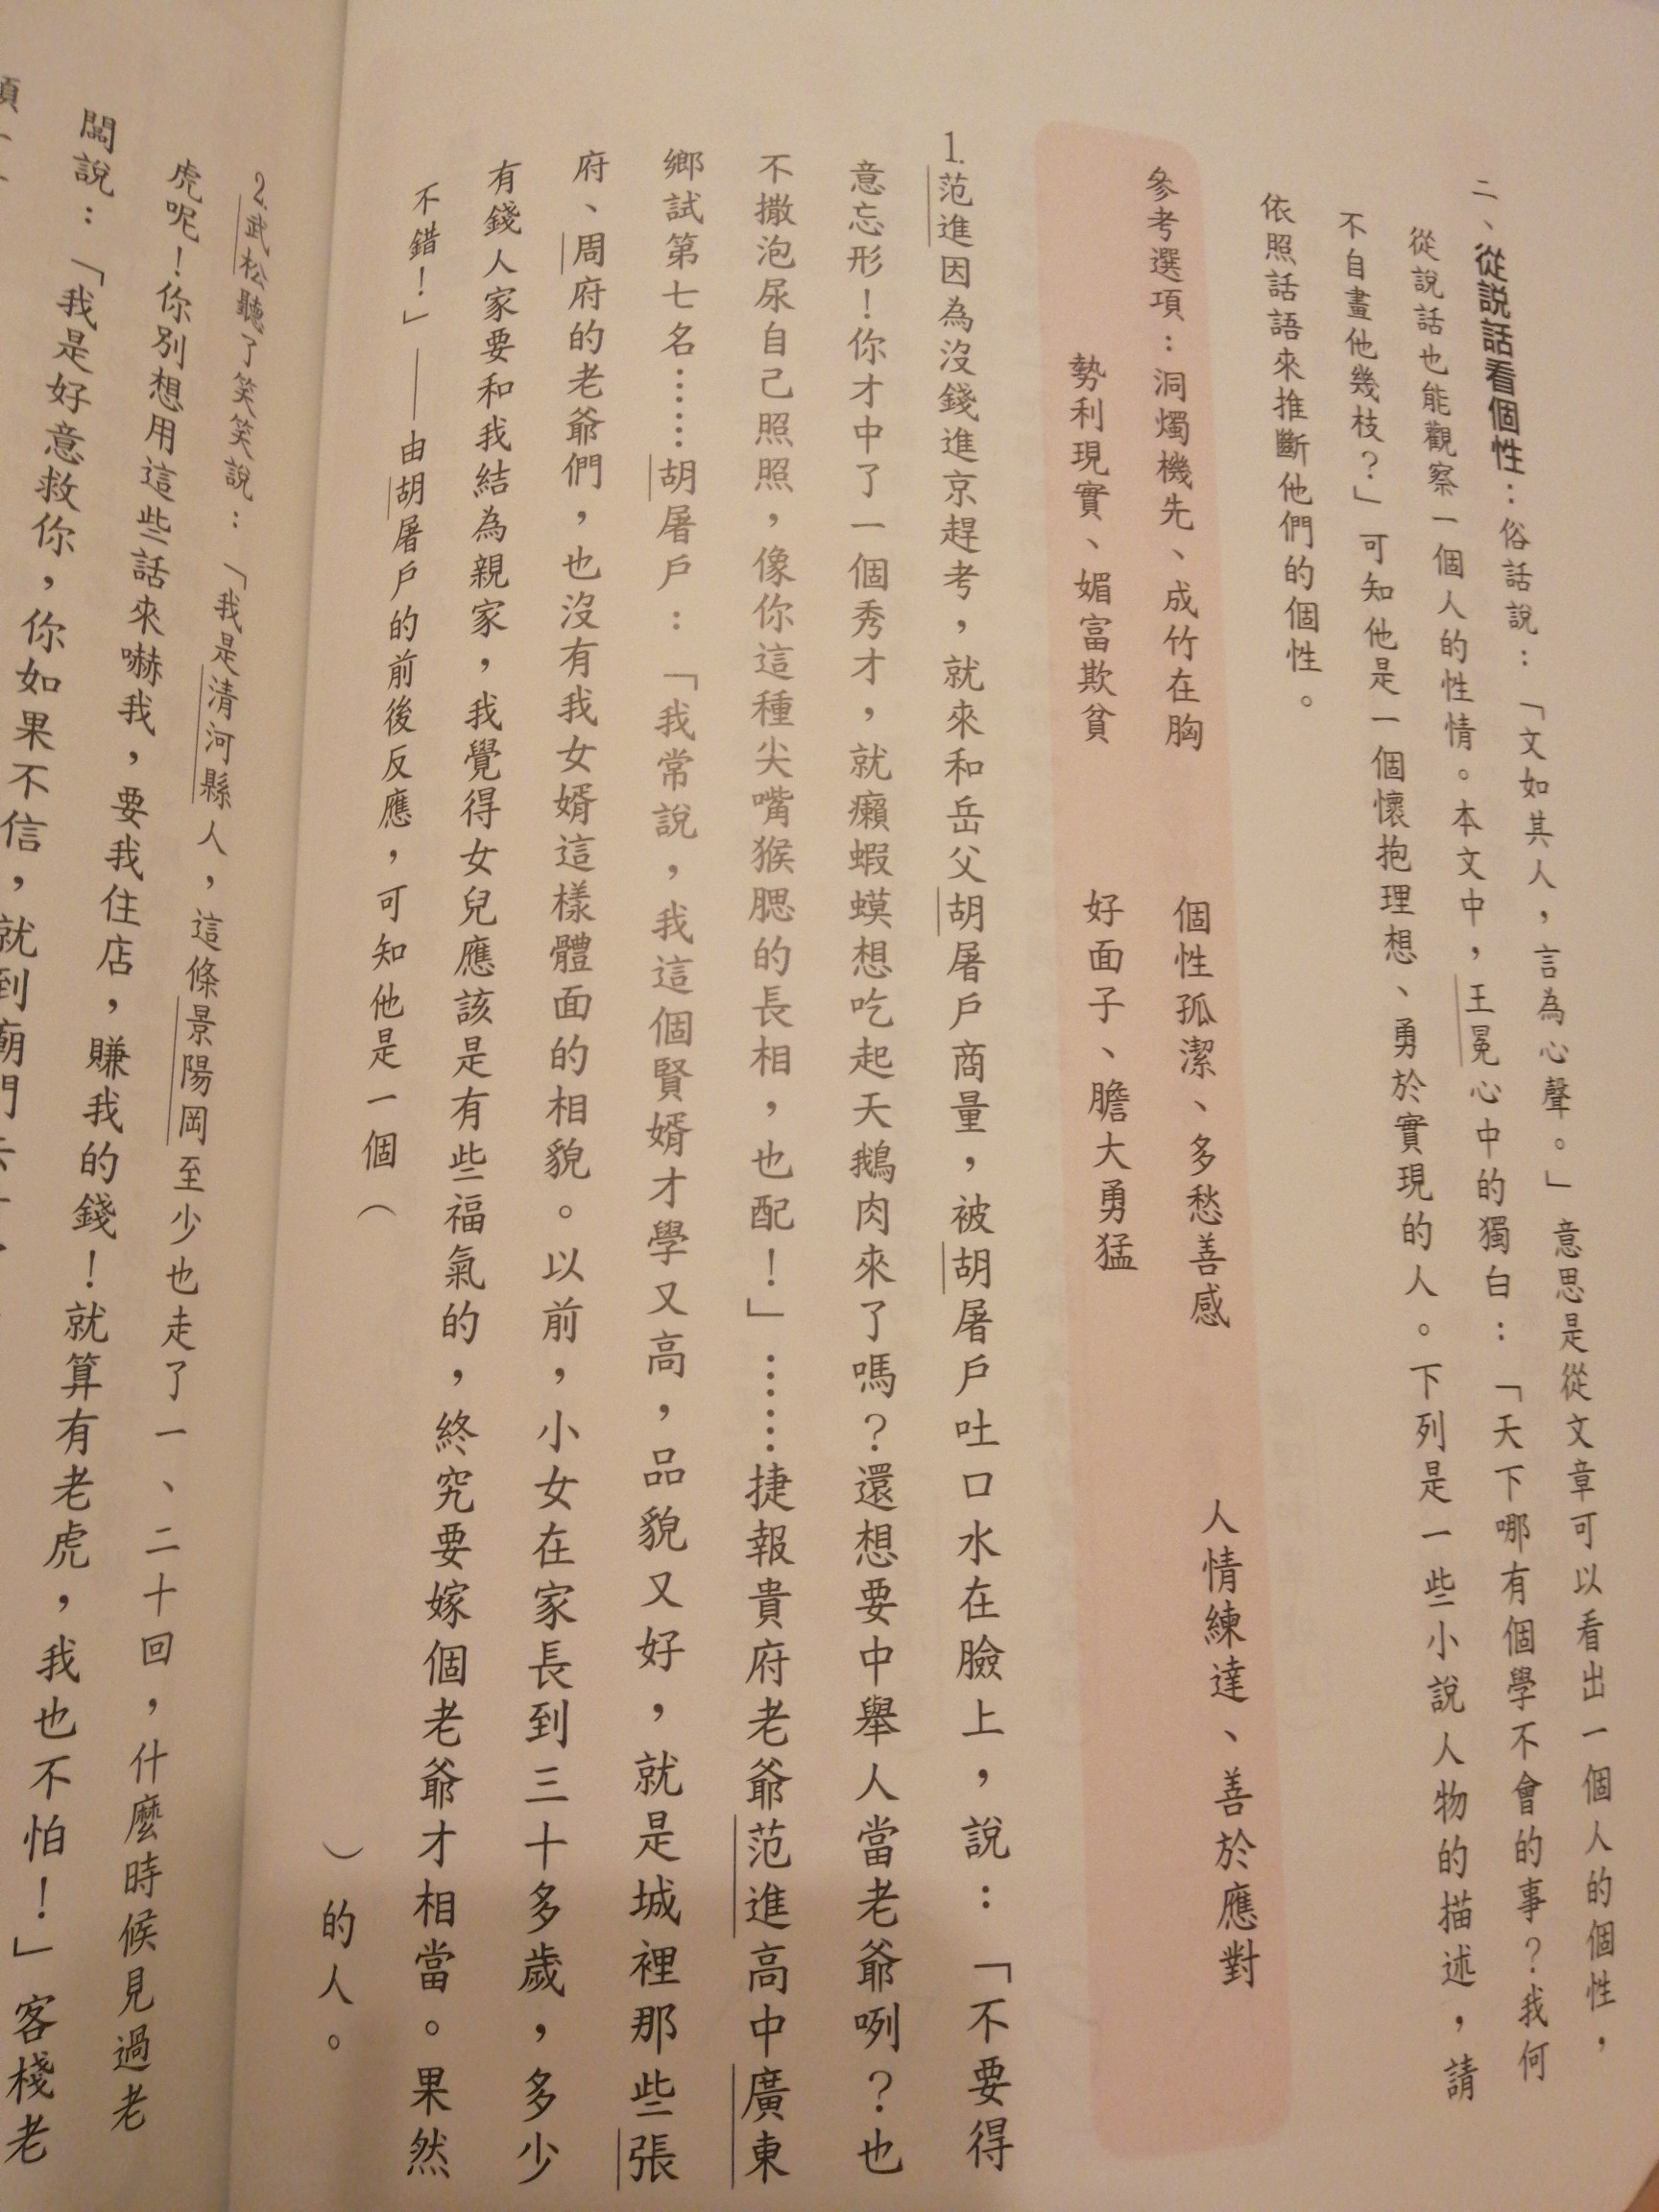 二、從說話看個性：俗話說：「文如其人，言為心聲。」意思是從文章可以看出一個人的個性，
從說話也能觀察一個人的性情。本文中，王冕心中的獨白：「天下哪有個學不會的事？我何
不自畫他幾枝？」可知他是一個懷抱理想、勇於實現的人。下列是一些小說人物的描述，請
依照話語來推斷他們的個性。
參考選項：洞燭機先、成竹在胸　個性孤潔、多愁善感　人情練達、善於應對
勢利現實、媚富欺貧　好面子、膽大勇猛
1.范進因為沒錢進京趕考，就來和岳父胡屠戶商量，被胡屠戶吐口水在臉上，說：「不要得
意忘形！你才中了一個秀才，就癩蝦蟆想吃起天鵝肉來了嗎？還想要中舉人當老爺咧？也
不撒泡尿自己照照，像你這種尖嘴猴腮的長相，也配！」……捷報貴府老爺范進高中廣東
鄉試第七名……胡屠戶：「我常說，我這個賢婿才學又高，品貌又好，就是城裡那些張
府、周府的老爺們，也沒有我女婿這樣體面的相貌。以前，小女在家長到三十多歲，多少
有錢人家要和我結為親家，我覺得女兒應該是有些福氣的，終究要嫁個老爺才相當。果然
不錯！」——由胡屠戶的前後反應，可知他是一個（　　　）的人。
2.武松聽了笑笑說：「我是清河縣人，這條景陽岡至少也走了一、二十回，什麼時候見過老
虎呢！你別想用這些話來嚇我，要我住店，賺我的錢！就算有老虎，我也不怕！」客棧老
闆說：「我是好意救你，你如果不信，就到廟門去